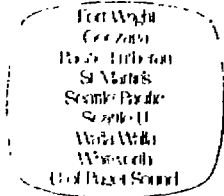 Fort Wright
Gonzaga
Pacific Lutheran
St Martin's
Seattle Pacific
Seattle U
Walla Walla
Whitworth
U of Puget Sound